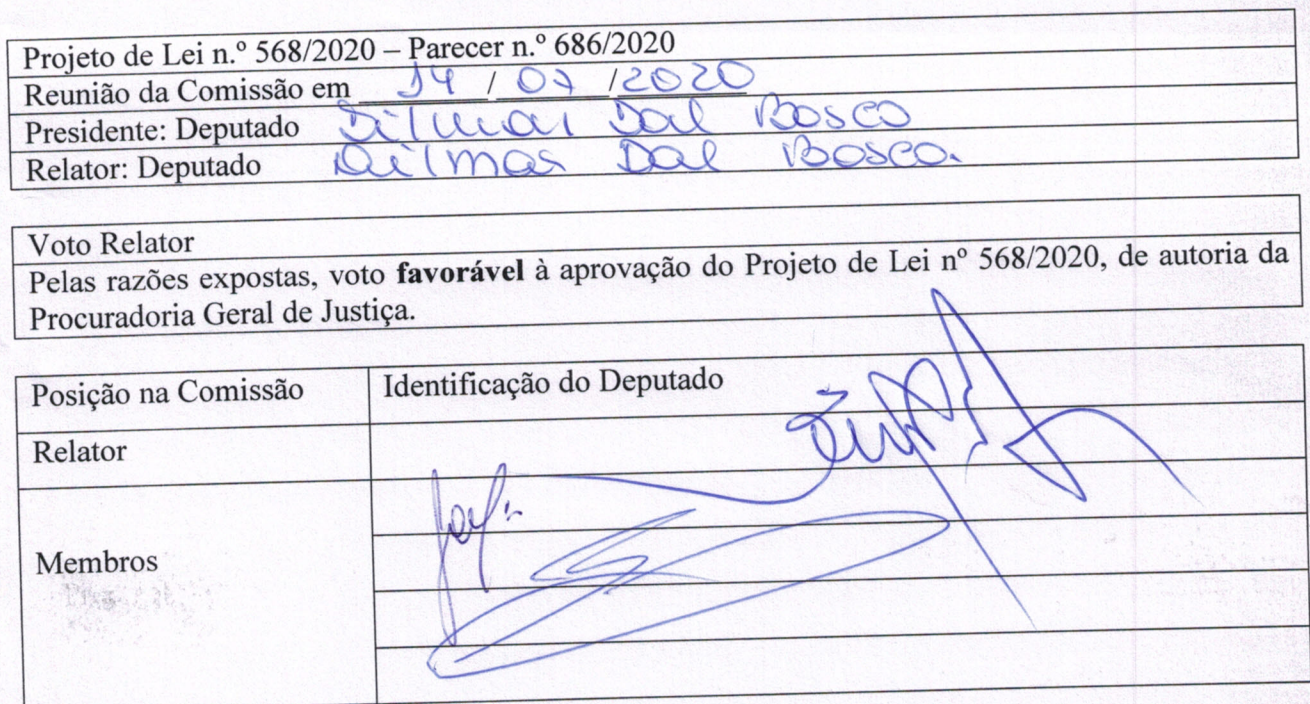 Projeto de Lei n.º 568/2020 – Parecer n.º 686/2020
Reunião da Comissão em 14 / 07 /2020
Presidente: Deputado Dilmar Dal Bosco
Relator: Deputado Dilmar Dal Bosco.
Voto Relator
Pelas razões expostas, voto favorável à aprovação do Projeto de Lei nº 568/2020, de autoria da
Procuradoria Geral de Justiça.
Posição na Comissão Identificação do Deputado
Relator
Membros